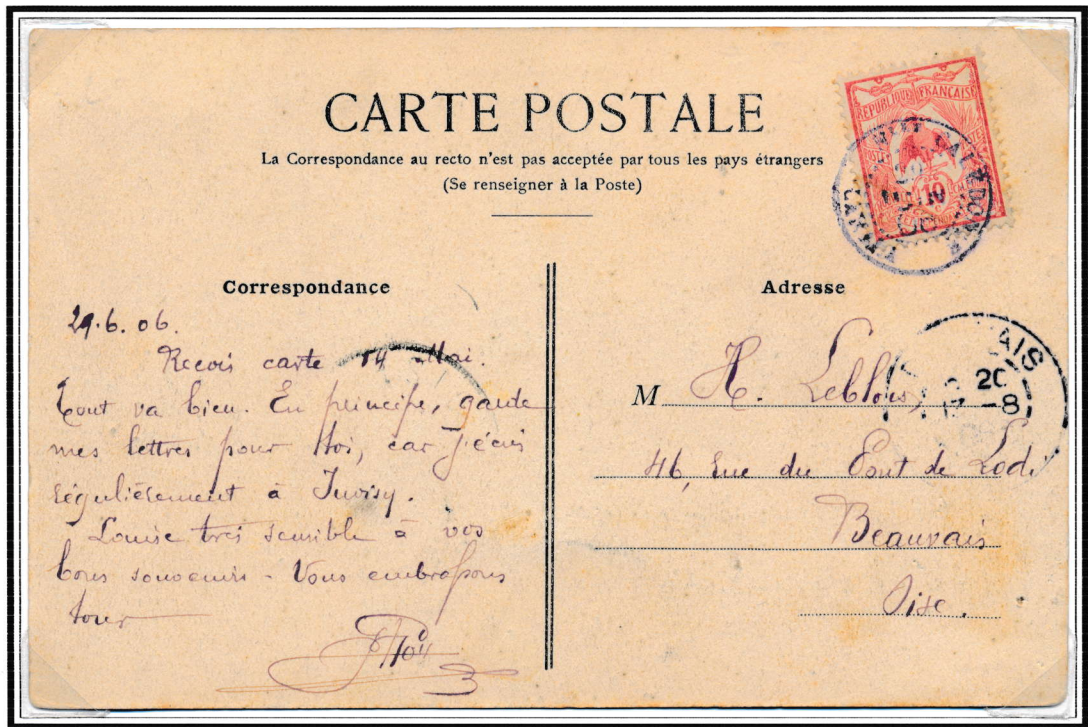 CARTE POSTALE
La Correspondance au recto n'est pas acceptée par tous les pays étrangers
(Se renseigner à la Poste)
RÉPUBLIQUE FRANÇAISE
10
Correspondance
Adresse
29.6.06.
Reçois carte 14 Mai.
Tout va bien. En principe, garde
mes lettres pour toi, car j'écris
régulièrement à Juvisy.
Louise très sensible à vos
bons souvenirs - Vous embrassons
tous
M H. Leblois
46, rue du Pont de Lodi
Beauvais
Oise.
AIS
20
-8